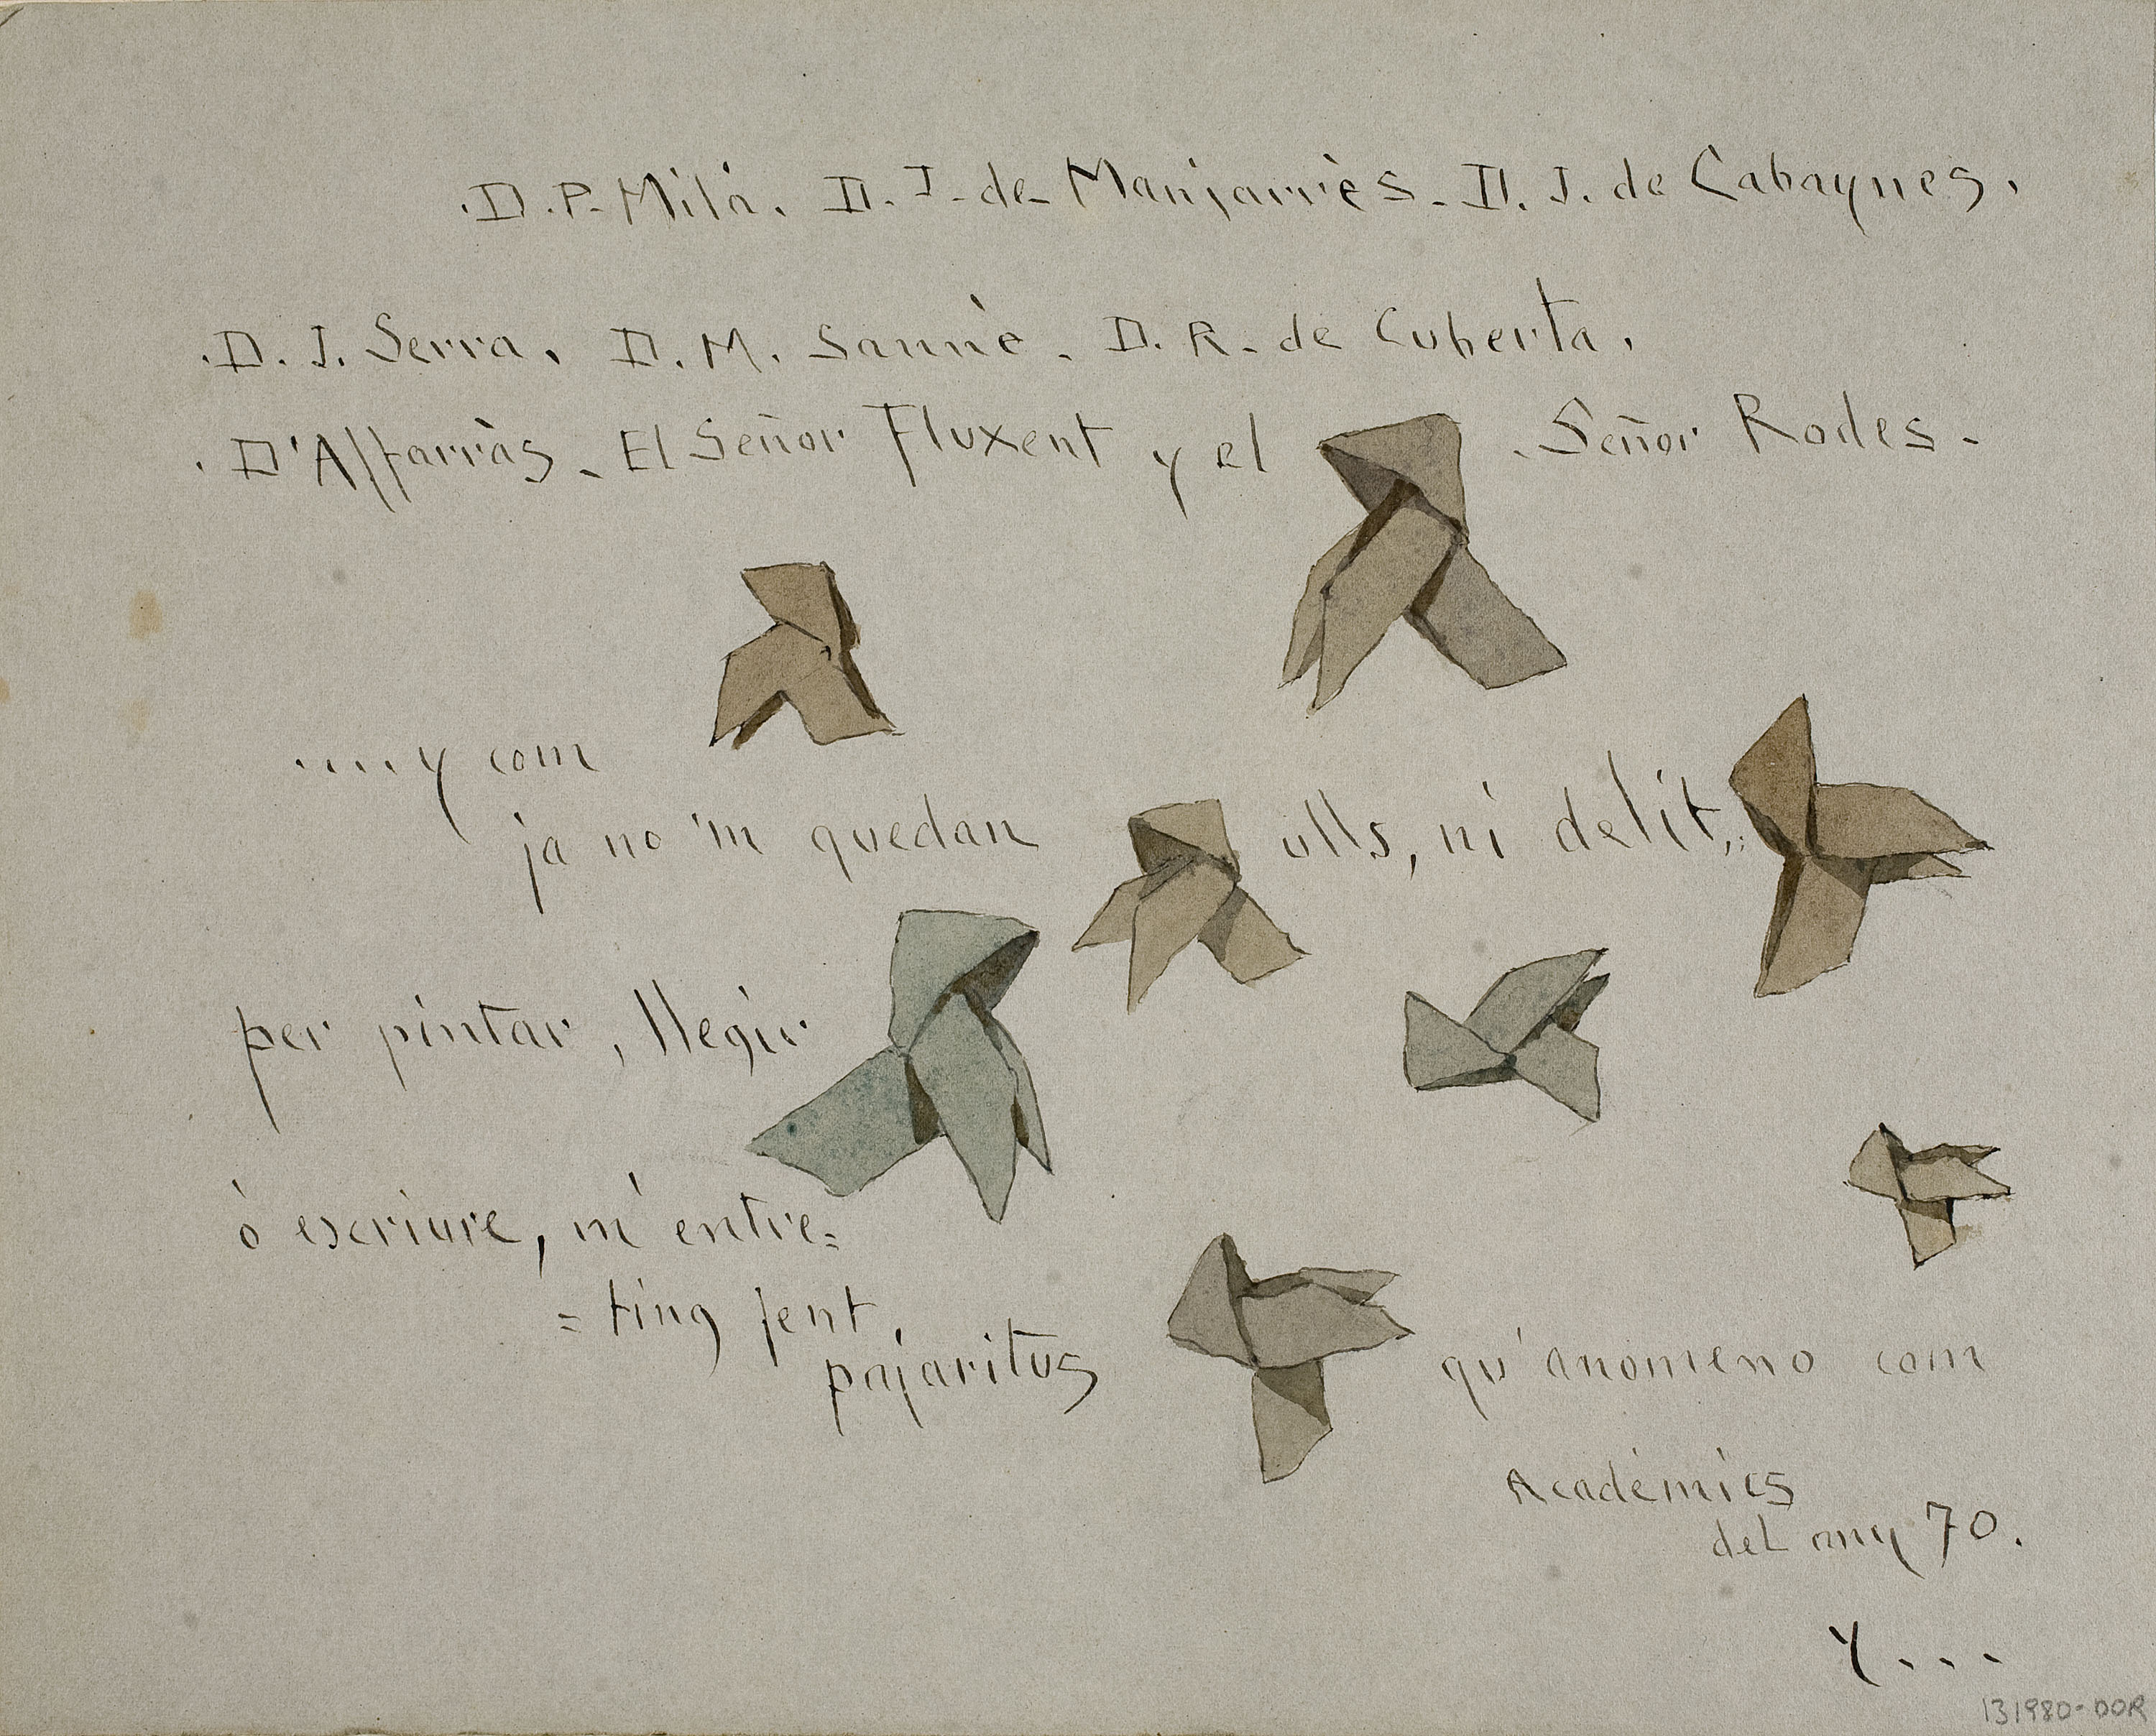 .D.P. Milá. D. J. de Manjarrès. D. J. de Cabaynes.
.D. J. Serra. D. M. Sanrrè. D. R. de Cuberta.
.D'Alfarràs. El Señor Fluxent y el .Señor Rodes.
....y com
ja no 'm quedan ulls, ni delit,
per pintar, llegir
ò escriure, m' entre=
=ting fent,
pajaritus qu'anomeno com
Académics
del any 70.
Y...
131980-DOR